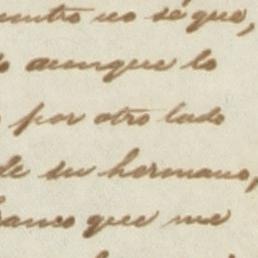 no sé que,
aunque lo
por otro lado
de su hermano,
que me